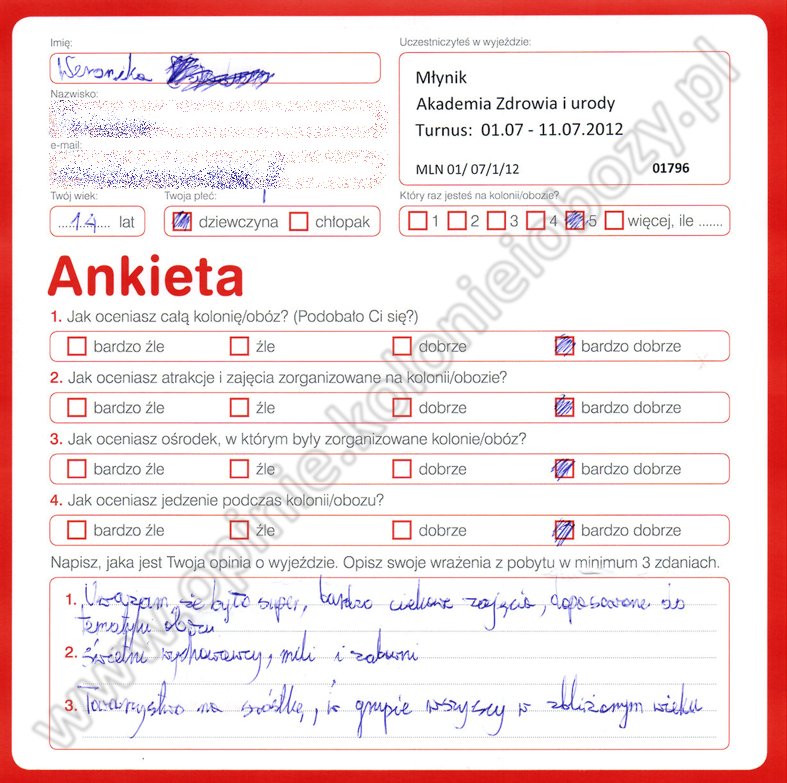 Imię:
Weronika
Uczestniczyłeś w wyjeździe:
Młynik
Akademia Zdrowia i urody
Turnus: 01.07 - 11.07.2012
MLN 01/ 07/1/12 01796
Nazwisko:
e-mail:
Twój wiek:
....14.... lat
Twoja płeć:
dziewczyna chłopak
Który raz jesteś na kolonii/obozie?
1 2 3 4 5 więcej, ile .......
Ankieta
1. Jak oceniasz całą kolonię/obóz? (Podobało Ci się?)
bardzo źle źle dobrze bardzo dobrze
2. Jak oceniasz atrakcje i zajęcia zorganizowane na kolonii/obozie?
bardzo źle źle dobrze bardzo dobrze
3. Jak oceniasz ośrodek, w którym były zorganizowane kolonie/obóz?
bardzo źle źle dobrze bardzo dobrze
4. Jak oceniasz jedzenie podczas kolonii/obozu?
bardzo źle źle dobrze bardzo dobrze
Napisz, jaka jest Twoja opinia o wyjeździe. Opisz swoje wrażenia z pobytu w minimum 3 zdaniach.
1. Uważam, że było super, bardzo ciekawe zajęcia, dopasowane do
tematyki obozu
2. Świetni wychowawcy, mili i zabawni
3. Towarzystwo na szóstkę, w grupie wszyscy w zbliżonym wieku
www.opinie.kolonieiobozy.pl